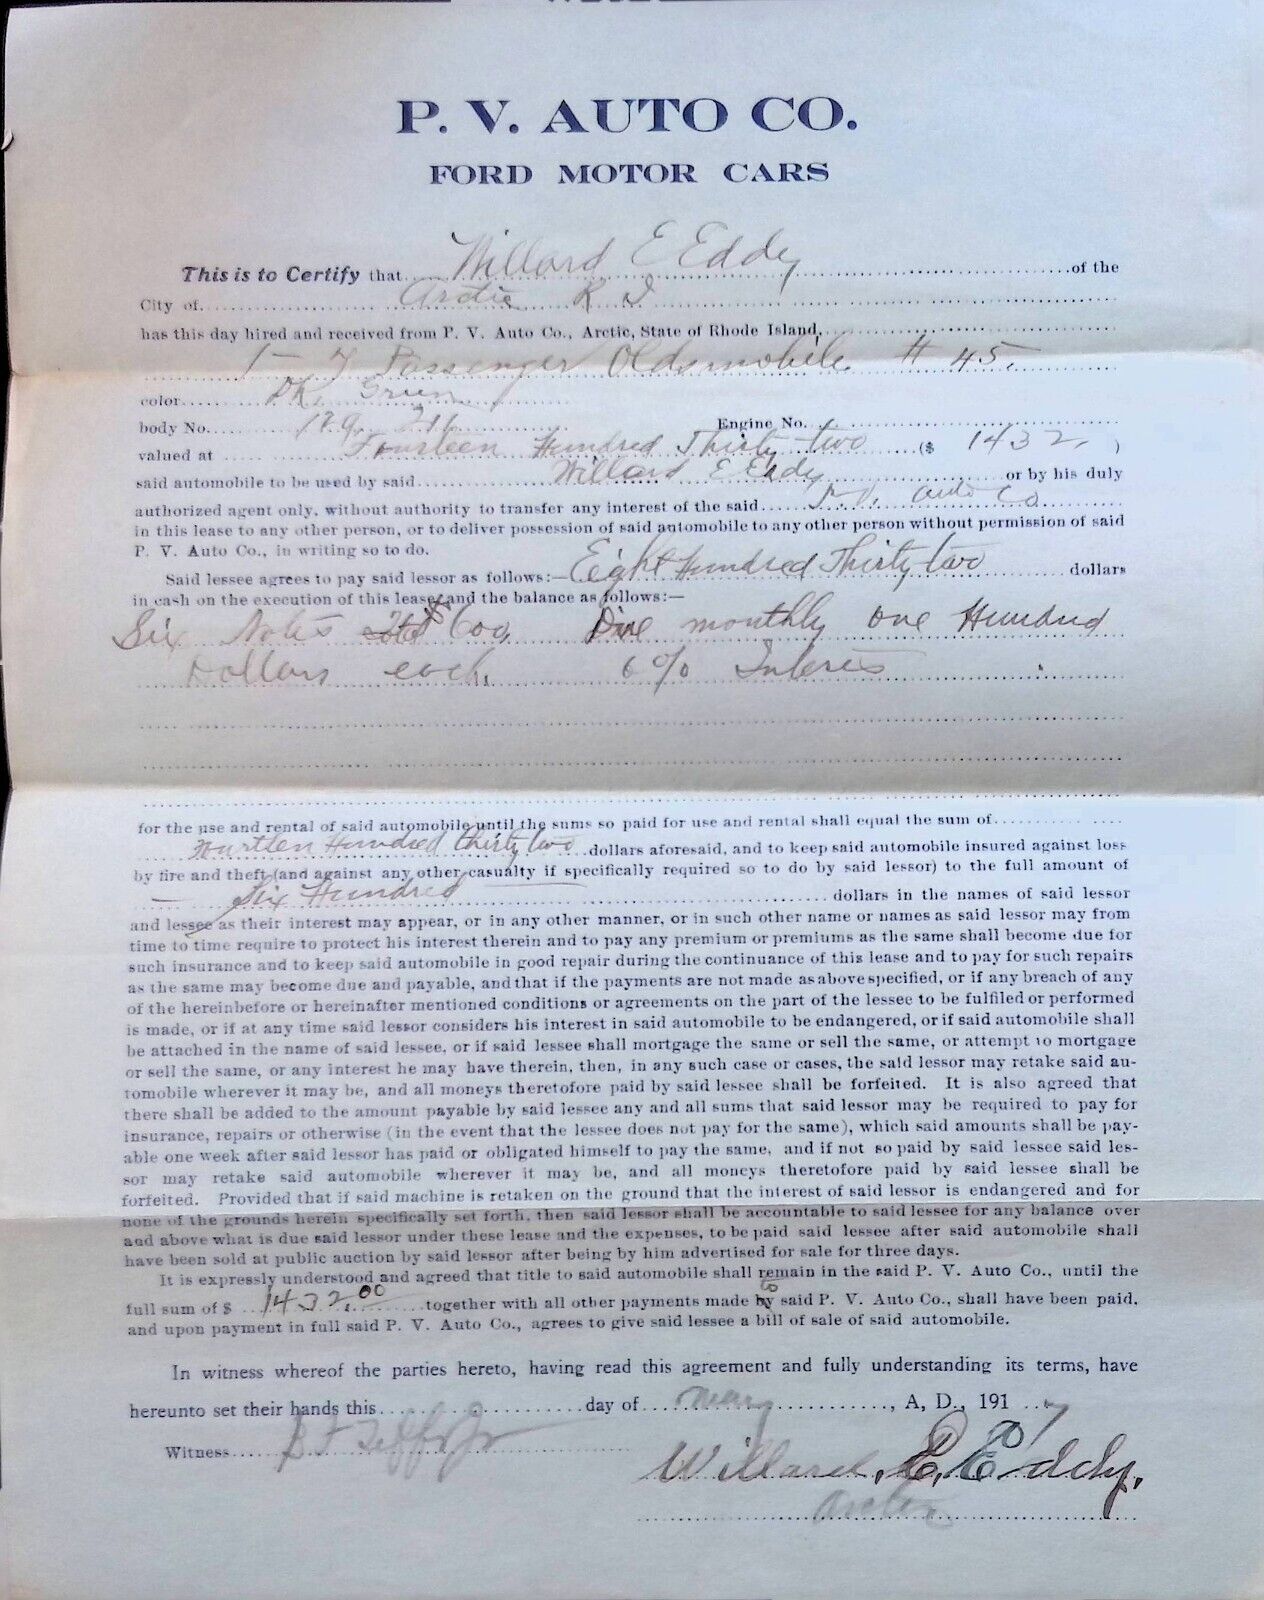 P. V. AUTO CO.
FORD MOTOR CARS
This is to Certify that Willard E Eddy of the
City of Arctic R I
has this day hired and received from P. V. Auto Co., Arctic, State of Rhode Island,
1 - 7 Passenger Oldsmobile # 45.
color Dk. Green
body No. 129 216 Engine No.
valued at Fourteen Hundred Thirty two ($ 1432. )
said automobile to be used by said Willard E Eddy or by his duly
authorized agent only, without authority to transfer any interest of the said P. V. Auto Co
in this lease to any other person, or to deliver possession of said automobile to any other person without permission of said
P. V. Auto Co., in writing so to do.
Said lessee agrees to pay said lessor as follows:— Eight Hundred Thirty two dollars
in cash on the execution of this lease and the balance as follows:—
Six Notes $600. Due monthly one Hundred
Dollars each. 6% Interes
for the use and rental of said automobile until the sums so paid for use and rental shall equal the sum of
Fourteen Hundred thirty two dollars aforesaid, and to keep said automobile insured against loss
by fire and theft (and against any other casualty if specifically required so to do by said lessor) to the full amount of
— Six Hundred dollars in the names of said lessor
and lessee as their interest may appear, or in any other manner, or in such other name or names as said lessor may from
time to time require to protect his interest therein and to pay any premium or premiums as the same shall become due for
such insurance and to keep said automobile in good repair during the continuance of this lease and to pay for such repairs
as the same may become due and payable, and that if the payments are not made as above specified, or if any breach of any
of the hereinbefore or hereinafter mentioned conditions or agreements on the part of the lessee to be fulfiled or performed
is made, or if at any time said lessor considers his interest in said automobile to be endangered, or if said automobile shall
be attached in the name of said lessee, or if said lessee shall mortgage the same or sell the same, or attempt to mortgage
or sell the same, or any interest he may have therein, then, in any such case or cases, the said lessor may retake said au-
tomobile wherever it may be, and all moneys theretofore paid by said lessee shall be forfeited. It is also agreed that
there shall be added to the amount payable by said lessee any and all sums that said lessor may be required to pay for
insurance, repairs or otherwise (in the event that the lessee does not pay for the same), which said amounts shall be pay-
able one week after said lessor has paid or obligated himself to pay the same, and if not so paid by said lessee said les-
sor may retake said automobile wherever it may be, and all moneys theretofore paid by said lessee shall be
forfeited. Provided that if said machine is retaken on the ground that the interest of said lessor is endangered and for
none of the grounds herein specifically set forth, then said lessor shall be accountable to said lessee for any balance over
and above what is due said lessor under these lease and the expenses, to be paid said lessee after said automobile shall
have been sold at public auction by said lessor after being by him advertised for sale for three days.
It is expressly understood and agreed that title to said automobile shall remain in the said P. V. Auto Co., until the
full sum of $ 1432.00 together with all other payments made to said P. V. Auto Co., shall have been paid,
and upon payment in full said P. V. Auto Co., agrees to give said lessee a bill of sale of said automobile.
In witness whereof the parties hereto, having read this agreement and fully understanding its terms, have
hereunto set their hands this day of May , A, D., 191 7
Witness
Willard, E, Eddy,
Arctic